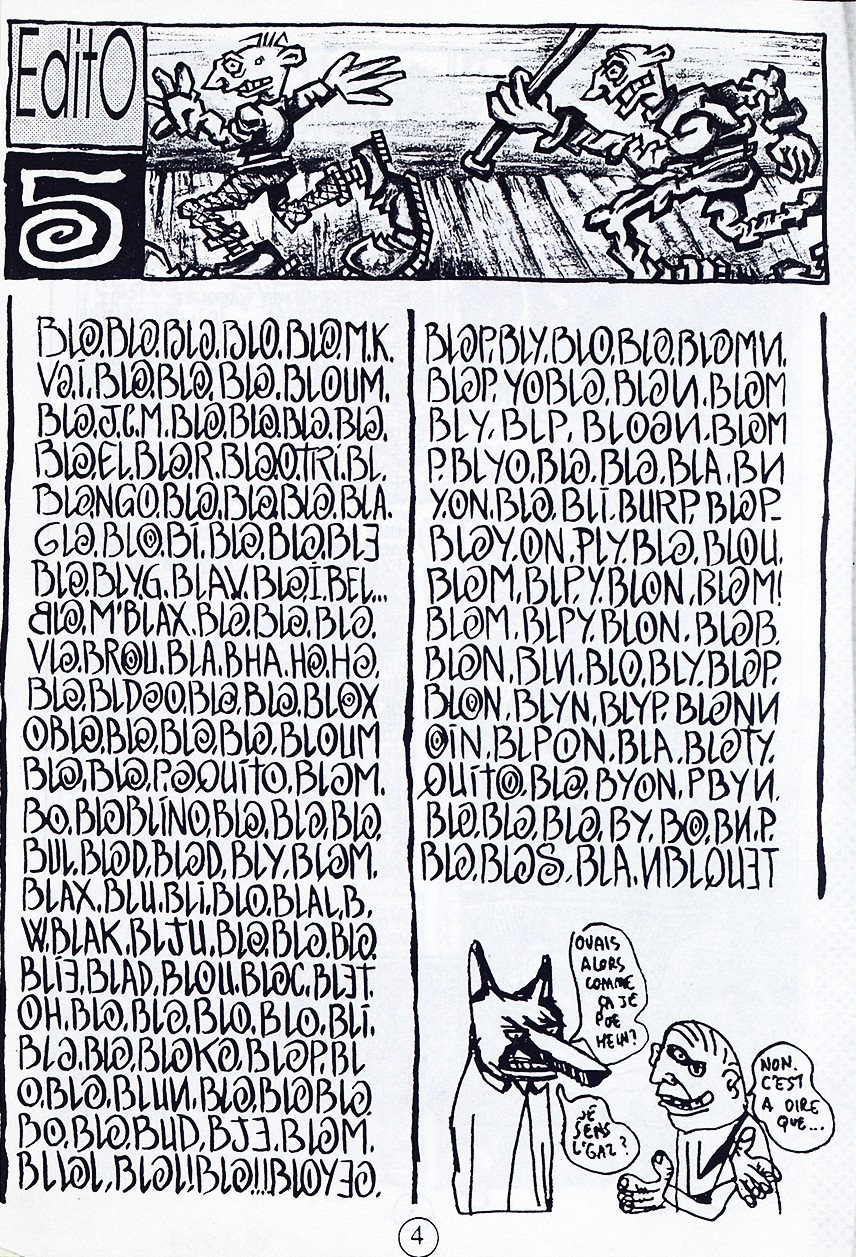 EditO
5
BLa.BLa.BLa.BLO.BLa.M.K.
Va.í.BLa.BLa, BLa.BLOUM.
BLa.J.C.M.BLa.BLa.BLa.BLa.
BLa.EL.BLa.R.BLaOTRí.BL.
BLaNGO.BLa.BLa.BLa.BLA.
GLa.BLO.Bí.BLa.BLa.BLE
BLa.BLY.G.BLAV.BLa.Í.BEL...
BLa.M'BLAX.BLa.BLa.BLa.
VLa.BROU.BLA.BHA.Ha.Ha.
BLa.BLDaO.BLa.BLa.BLOX
OBLa.BLa.BLa.BLa.BLOUM
BLa.BLa.P.aQUítO.BLaM.
BO.BLaBLíNO.BLa.BLa.BLa,
BUL.BLaD.BLaD.BLY.BLaM.
BLAX.BLU.BLi.BLO.BLAL.B.
W.BLAK.BLJU.BLa.BLa.BLa
BLíE.BLAD.BLOU.BLaC.BLET.
OH.BLa.BLa.BLO.BLO.BLí.
BLa.BLa.BLaKa.BLaP.BL
O.BLa.BLUN.BLa.BLaBLa.
BO.BLa.BUD,BJE.BLaM.
BLLaL,BLaL!BLa!!!BLOYEa.
BLaP.BLY.BLO.BLa.BLaMN.
BLaP.YOBLa.BLaN.BLaM
BLY, BLP, BLOaN.BLaM
P.BLYO.BLa.BLa.BLA.BN
Y.ON.BLa.BLí.BURP.BLaP_
BLaY.ON.PLY.BLa.BLOU.
BLaM.BLP.Y.BLON.BLaM!
BLaM.BLPY.BLON.BLaB.
BLaN.BLN.BLO.BLY.BLaP.
BLON.BLYN.BLYP.BLaNN
OíN.BLPON.BLA.BLaTY.
QUítO.BLa.BYON.PBYN.
BLa.BLa.BLa.BY.BO.BN.P.
BLa.BLaS.BLA.NBLQUET
OUAIS
ALORS
COMME
ÇA JÉ
POE
HEIN?
JÉ
SENS
L'GAZ?
NON.
C'EST
A DIRE
QUE...
4